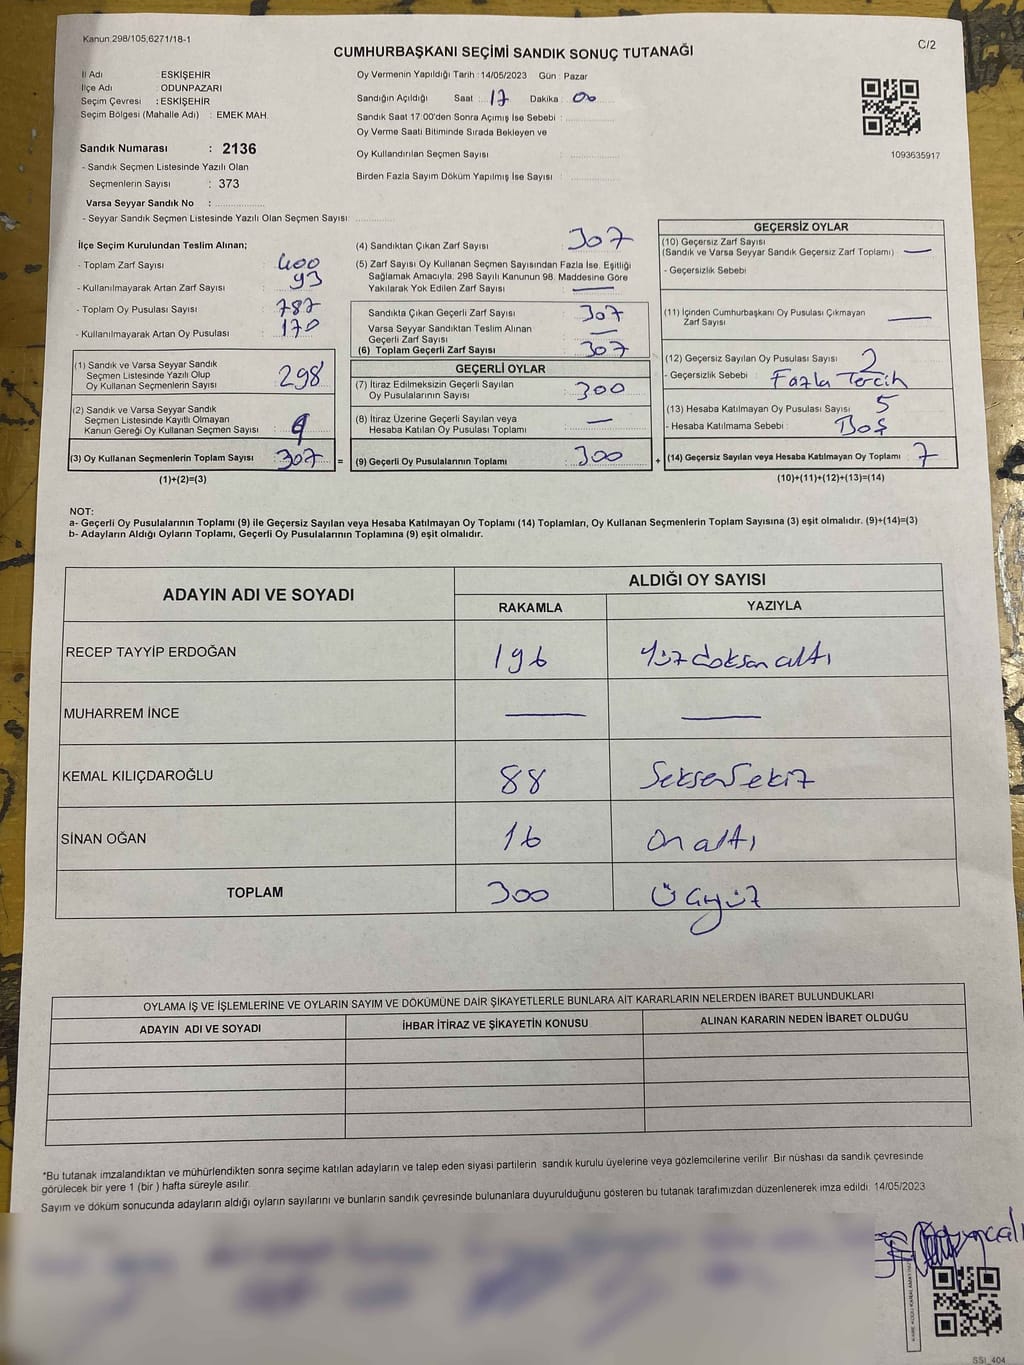 Kanun:298/105,6271/18-1
C/2
CUMHURBAŞKANI SEÇİMİ SANDIK SONUÇ TUTANAĞI
İl Adı : ESKİŞEHİR
İlçe Adı : ODUNPAZARI
Seçim Çevresi : ESKİŞEHİR
Seçim Bölgesi (Mahalle Adı) : EMEK MAH.
Oy Vermenin Yapıldığı Tarih : 14/05/2023 Gün : Pazar
Sandığın Açıldığı Saat : 17 Dakika : 00
Sandık Saat 17:00'den Sonra Açılmış İse Sebebi :
Oy Verme Saati Bitiminde Sırada Bekleyen ve
Oy Kullandırılan Seçmen Sayısı :
Birden Fazla Sayım Döküm Yapılmış İse Sayısı :
1093635917
Sandık Numarası : 2136
- Sandık Seçmen Listesinde Yazılı Olan
Seçmenlerin Sayısı : 373
Varsa Seyyar Sandık No :
- Seyyar Sandık Seçmen Listesinde Yazılı Olan Seçmen Sayısı:
İlçe Seçim Kurulundan Teslim Alınan;
- Toplam Zarf Sayısı : 400
- Kullanılmayarak Artan Zarf Sayısı : 93
- Toplam Oy Pusulası Sayısı : 787
- Kullanılmayarak Artan Oy Pusulası :
(1) Sandık ve Varsa Seyyar Sandık
Seçmen Listesinde Yazılı Olup
Oy Kullanan Seçmenlerin Sayısı : 298
(2) Sandık ve Varsa Seyyar Sandık
Seçmen Listesinde Kayıtlı Olmayan
Kanun Gereği Oy Kullanan Seçmen Sayısı : 9
(3) Oy Kullanan Seçmenlerin Toplam Sayısı : 307 =
(1)+(2)=(3)
(4) Sandıktan Çıkan Zarf Sayısı : 307
(5) Zarf Sayısı Oy Kullanan Seçmen Sayısından Fazla İse, Eşitliği
Sağlamak Amacıyla, 298 Sayılı Kanunun 98. Maddesine Göre
Yakılarak Yok Edilen Zarf Sayısı : —
Sandıkta Çıkan Geçerli Zarf Sayısı : 307
Varsa Seyyar Sandıktan Teslim Alınan
Geçerli Zarf Sayısı : —
(6) Toplam Geçerli Zarf Sayısı : 307
GEÇERLİ OYLAR
(7) İtiraz Edilmeksizin Geçerli Sayılan
Oy Pusulalarının Sayısı : 300
(8) İtiraz Üzerine Geçerli Sayılan veya
Hesaba Katılan Oy Pusulası Toplamı : —
(9) Geçerli Oy Pusulalarının Toplamı : 300 +
GEÇERSİZ OYLAR
(10) Geçersiz Zarf Sayısı
(Sandık ve Varsa Seyyar Sandık Geçersiz Zarf Toplamı) : —
- Geçersizlik Sebebi :
(11) İçinden Cumhurbaşkanı Oy Pusulası Çıkmayan
Zarf Sayısı : —
(12) Geçersiz Sayılan Oy Pusulası Sayısı : 2
- Geçersizlik Sebebi : Fazla Tercih
(13) Hesaba Katılmayan Oy Pusulası Sayısı : 5
- Hesaba Katılmama Sebebi : Boş
(14) Geçersiz Sayılan veya Hesaba Katılmayan Oy Toplamı : 7
(10)+(11)+(12)+(13)=(14)
NOT:
a- Geçerli Oy Pusulalarının Toplamı (9) ile Geçersiz Sayılan veya Hesaba Katılmayan Oy Toplamı (14) Toplamları, Oy Kullanan Seçmenlerin Toplam Sayısına (3) eşit olmalıdır. (9)+(14)=(3)
b- Adayların Aldığı Oyların Toplamı, Geçerli Oy Pusulalarının Toplamına (9) eşit olmalıdır.
ADAYIN ADI VE SOYADI
ALDIĞI OY SAYISI
RAKAMLA YAZIYLA
RECEP TAYYİP ERDOĞAN 196 Yüz doksan altı
MUHARREM İNCE — —
KEMAL KILIÇDAROĞLU 88 Seksen Sekiz
SİNAN OĞAN 16 On altı
TOPLAM 300 Üçyüz
OYLAMA İŞ VE İŞLEMLERİNE VE OYLARIN SAYIM VE DÖKÜMÜNE DAİR ŞİKAYETLERLE BUNLARA AİT KARARLARIN NELERDEN İBARET BULUNDUKLARI
ADAYIN ADI VE SOYADI İHBAR İTİRAZ VE ŞİKAYETİN KONUSU ALINAN KARARIN NEDEN İBARET OLDUĞU
*Bu tutanak imzalandıktan ve mühürlendikten sonra seçime katılan adayların ve talep eden siyasi partilerin sandık kurulu üyelerine veya gözlemcilerine verilir. Bir nüshası da sandık çevresinde
görülecek bir yere 1 (bir ) hafta süreyle asılır.
Sayım ve döküm sonucunda adayların aldığı oyların sayılarını ve bunların sandık çevresinde bulunanlara duyurulduğunu gösteren bu tutanak tarafımızdan düzenlenerek imza edildi. 14/05/2023
SSI_404